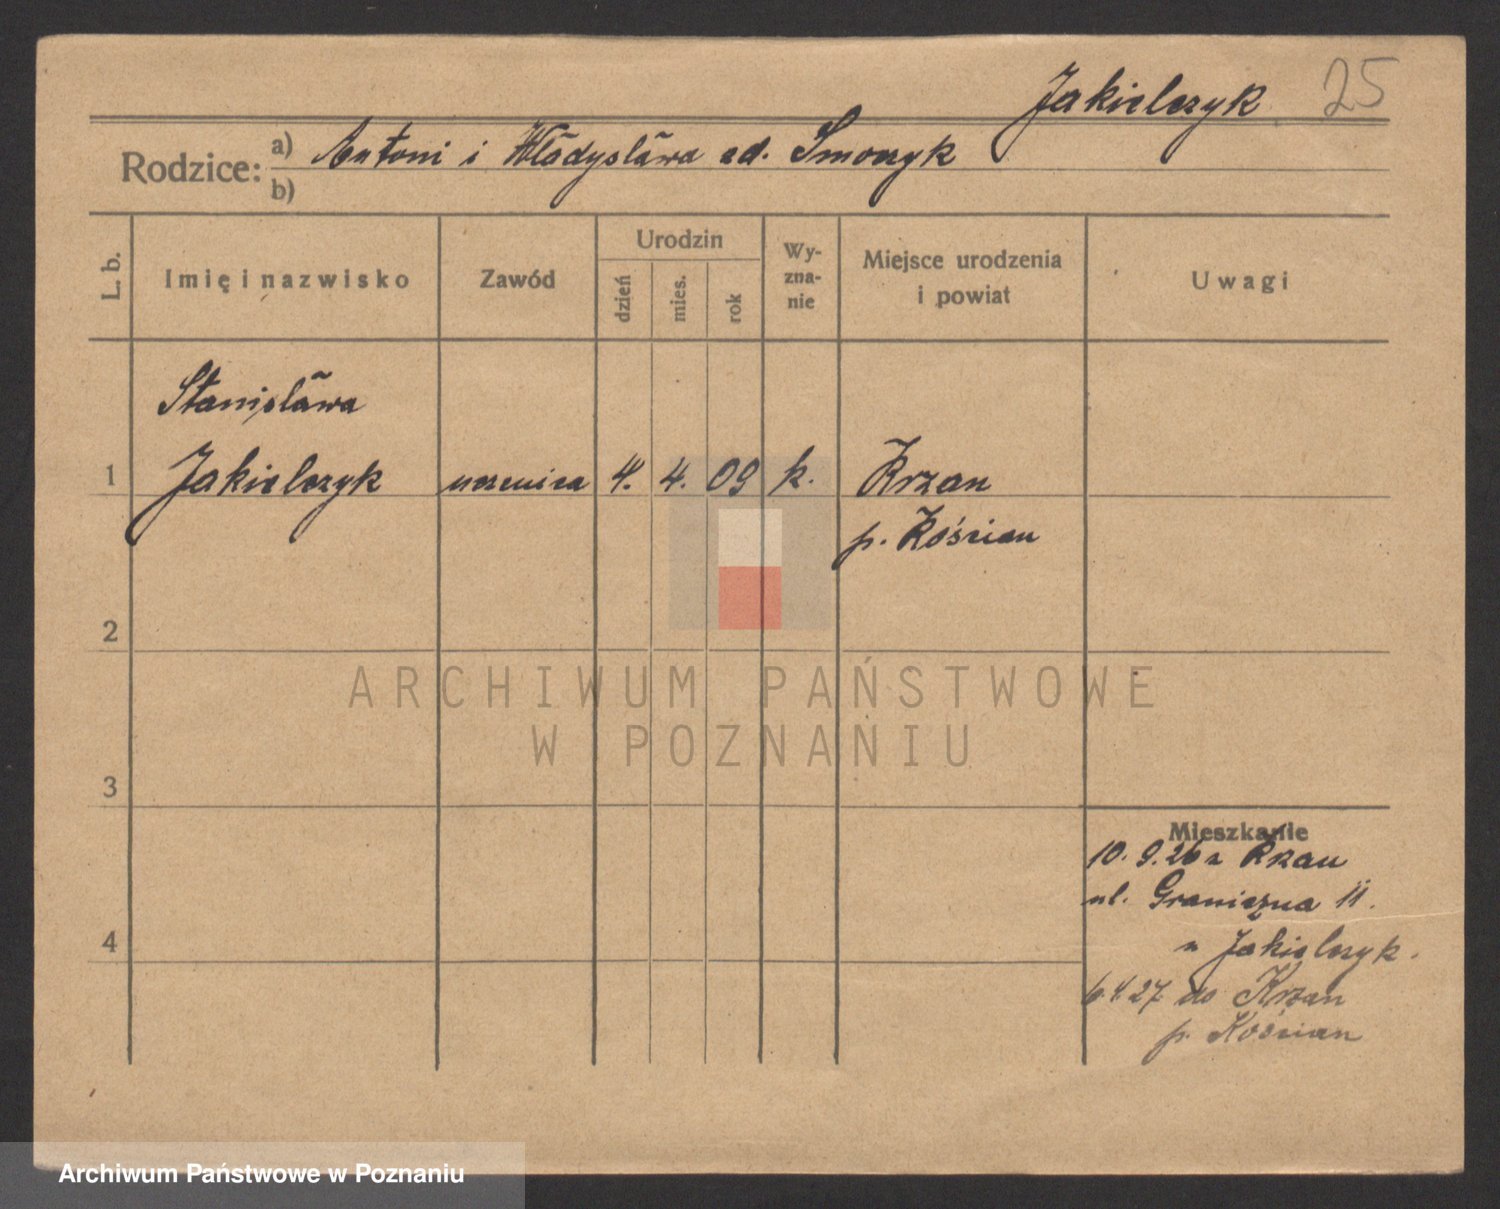 Jakielczyk 25
Rodzice: a) Antoni i Władysława zd. Smoczyk
b)
L. b. Imię i nazwisko Zawód Urodzin dzień mies. rok Wyznanie Miejsce urodzenia i powiat Uwagi
Stanisława
1 Jakielczyk uczenica 4. 4. 09 k. Krzan
p. Kościan
2
ARCHIWUM PAŃSTWOWE
W POZNANIU
3
Mieszkanie
10. 9. 26 z Krzan
ul. Graniczna 11.
u Jakielczyk.
4
6.4.27. do Krzan
p. Kościan
Archiwum Państwowe w Poznaniu